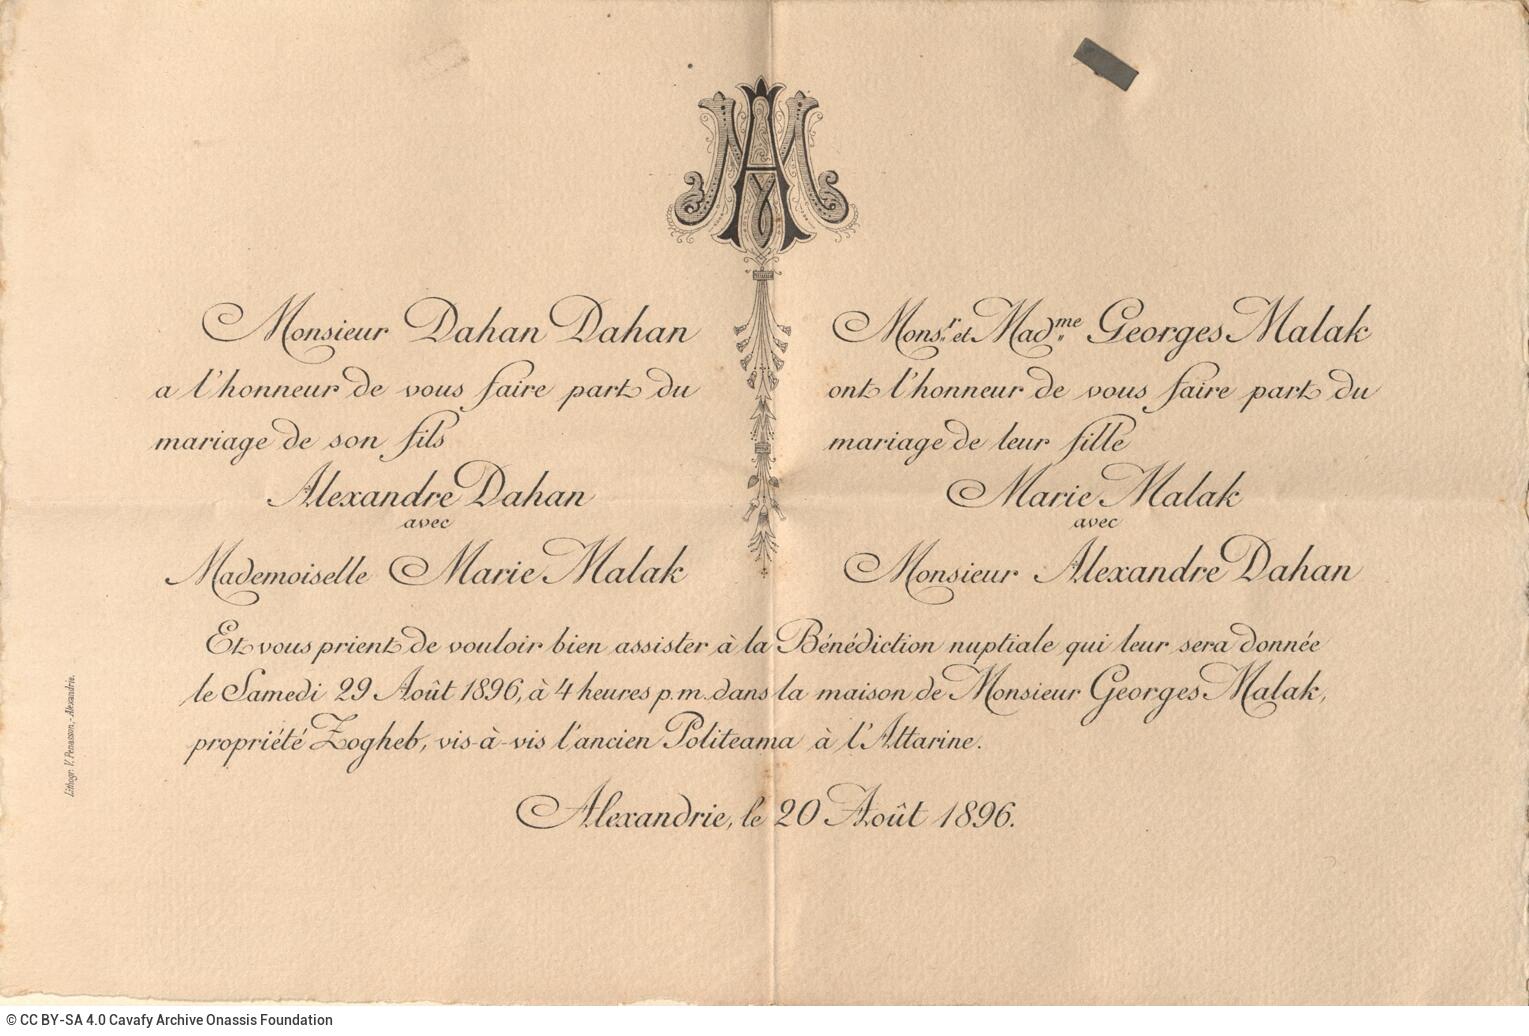 AM
Monsieur Dahan Dahan
a l'honneur de vous faire part du
mariage de son fils
Alexandre Dahan
avec
Mademoiselle Marie Malak
Monsr. et Madme. Georges Malak
ont l'honneur de vous faire part du
mariage de leur fille
Marie Malak
avec
Monsieur Alexandre Dahan
Et vous prient de vouloir bien assister à la Bénédiction nuptiale qui leur sera donnée
le Samedi 29 Août 1896, à 4 heures p.m. dans la maison de Monsieur Georges Malak,
propriété Zogheb, vis-à-vis l'ancien Politeama à l'Attarine.
Alexandrie, le 20 Août 1896.
Lithogr. V. Penasson,-Alexandrie.
© CC BY-SA 4.0 Cavafy Archive Onassis Foundation